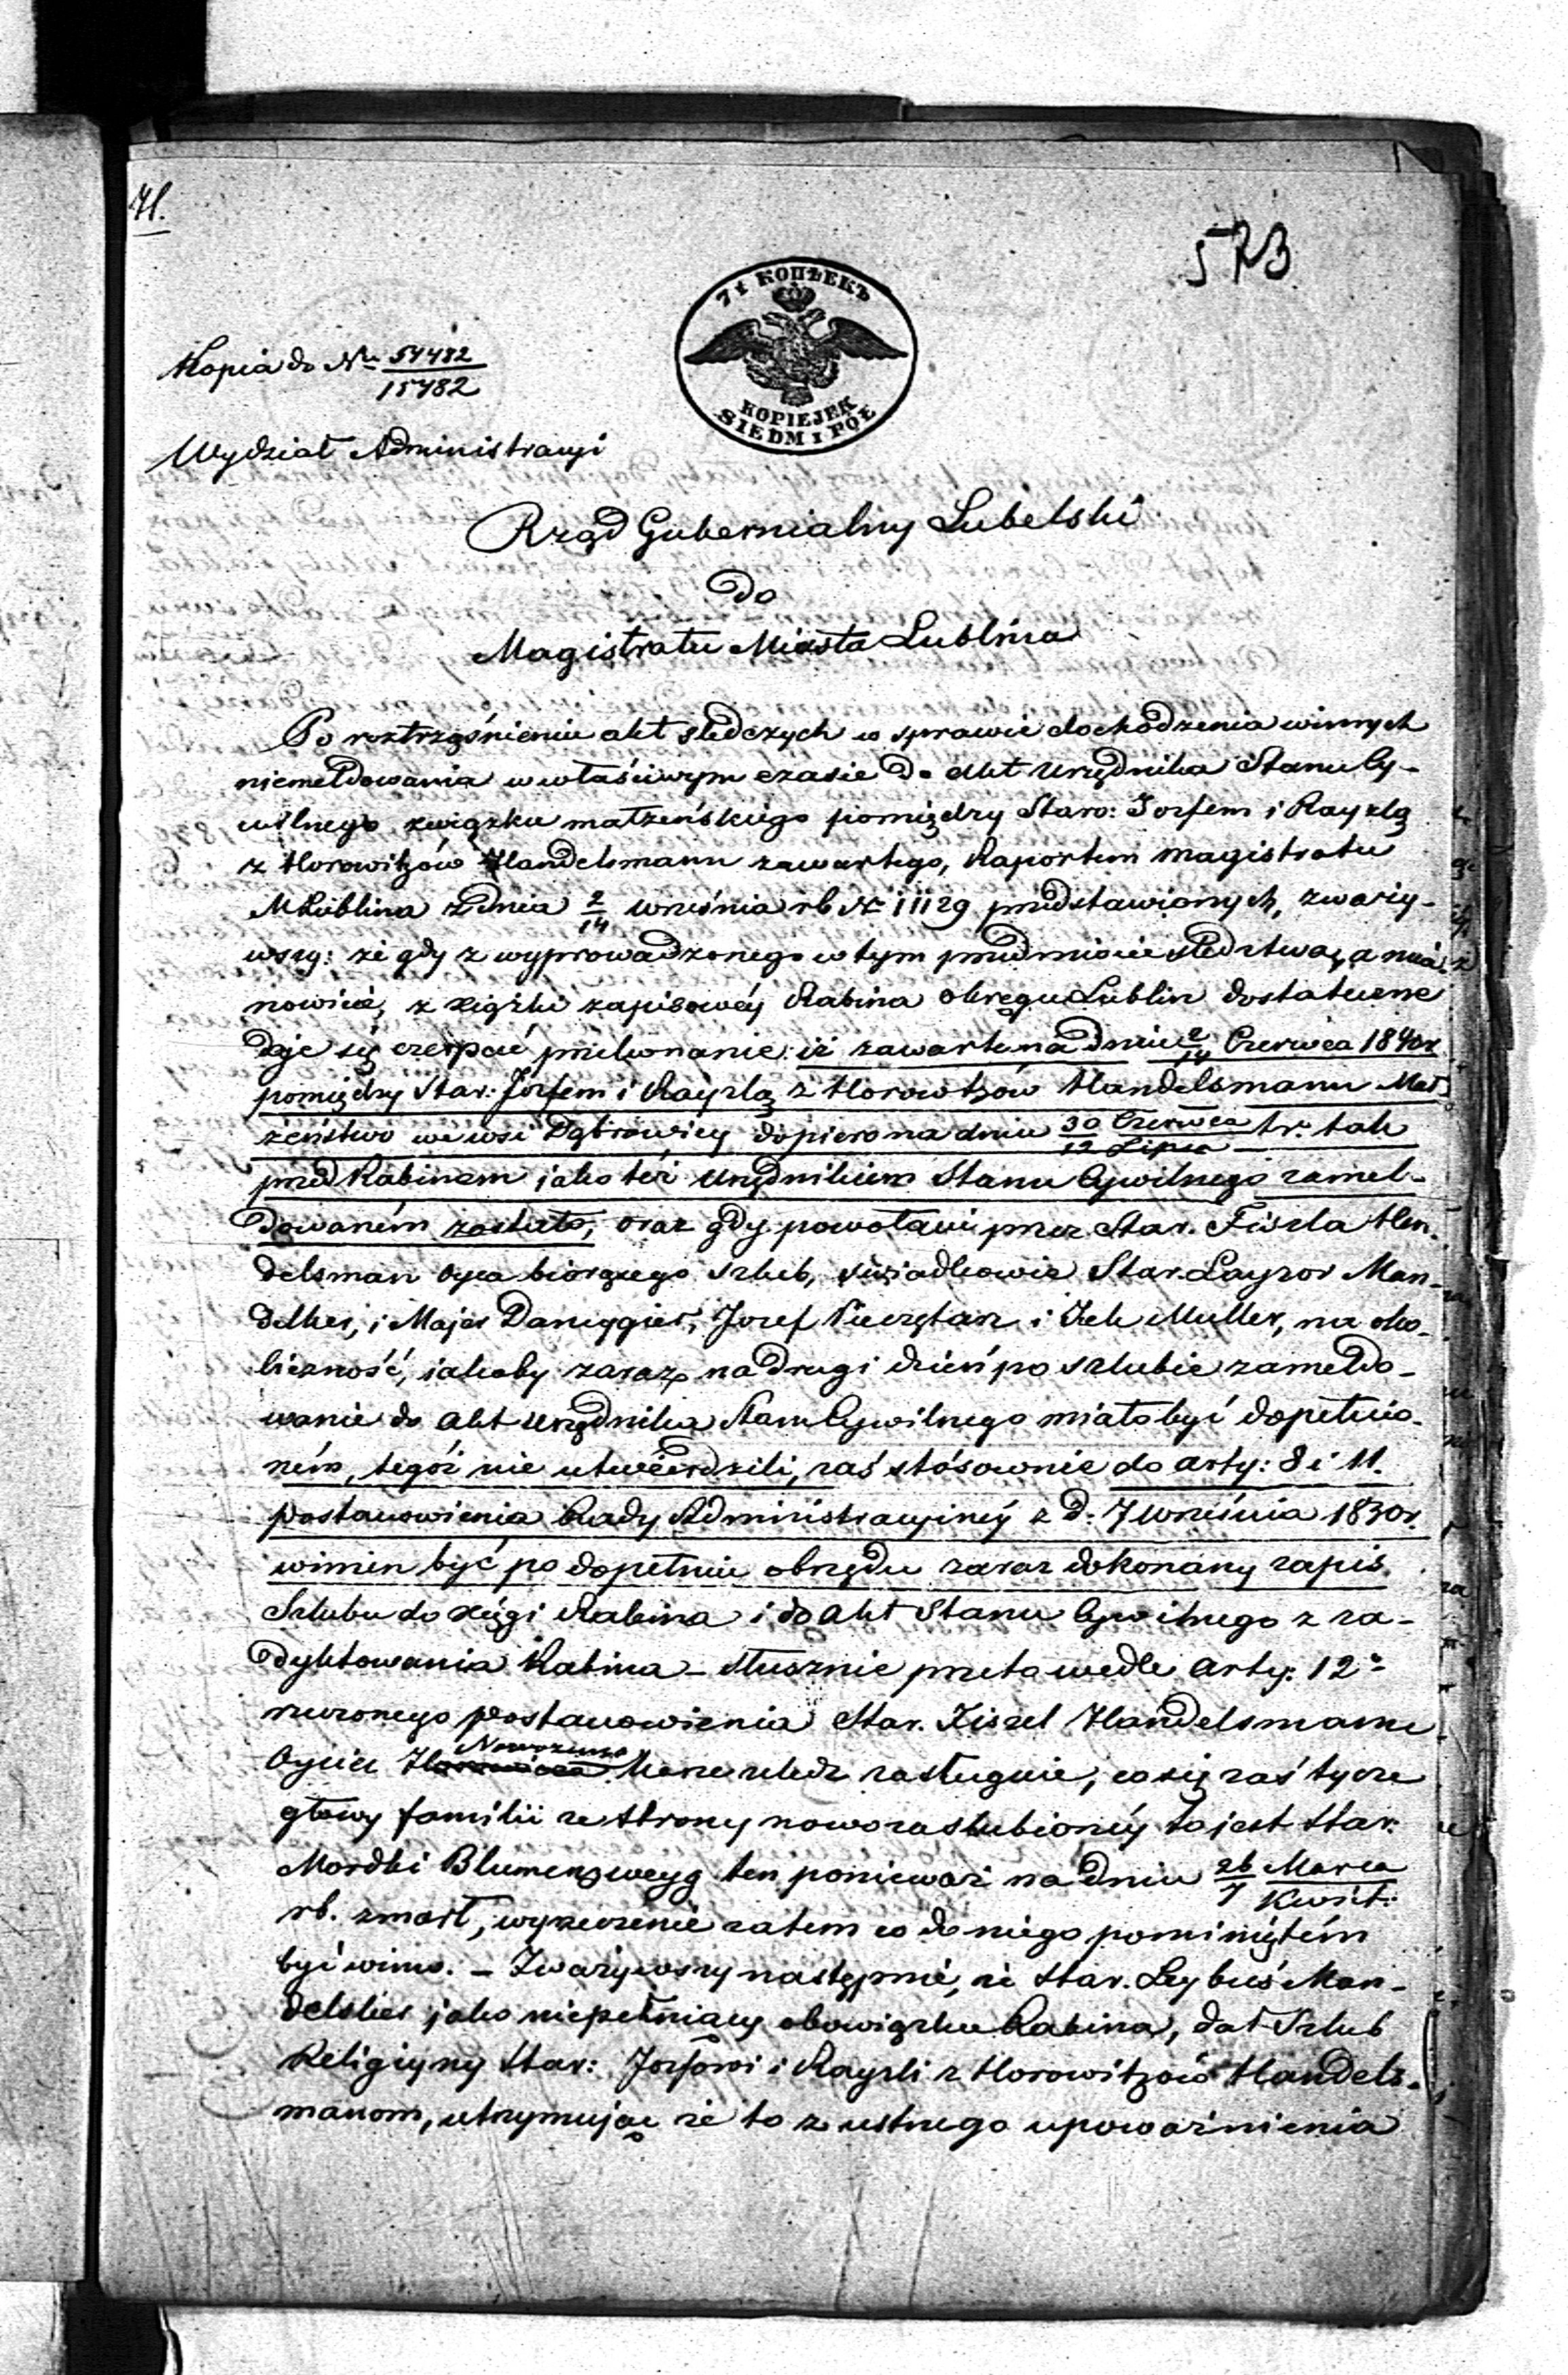 71.
573
7½ КОПѢЕКЪ
KOPIEJEK
SIEDM I PÓŁ
Kopia do Nru 54482
15482
Wydział Administracyi
Rząd Gubernialny Lubelski
Do
Magistratu Miasta Lublina
Po roztrząśnieniu akt śledczych w sprawie dochodzenia winnych
niemeldowania w właściwym czasie do akt Urzędnika Stanu Cy-
wilnego związku małżeńskiego pomiędzy Staro: Josfem i Rayzlą
z Horowitzów Handelsmanu zawartego, Raportem Magistratu
M Lublina z dnia 2/14 Września rb N 11129 przedstawionych, zważy-
wszy: że gdy z wyprowadzonego w tym przedmiocie śledztwa, a mia-
nowicie, z xiążki zapisowéy Rabina Okręgu Lublin dostateczne
daje się czerpać przekonanie: iż zawarte na dniu 2/14 Czerwca 1840r
pomiędzy Star: Josfem i Rayzlą z Horowtzów Handelsmanu Mał
żeństwo we wsi Dąbrowicy dopiero na dniu 30 Czerwca/12 Lipca t.r. tak
przed Rabinem jako też Urzędnikiem Stanu Cywilnego zamel-
dowaném zostało, oraz gdy powołani przez Star. Fiszla Han-
delsman Oyca biorącego szlub, świadkowie Star. Layzor Man-
delker, i Majer Danzygier, Josef Pieczętarz i Icek Muller, na oko-
liczność, jakoby zaraz na drugi dzień po szlubie zameldo-
wanie do akt Urzędnika Stanu Cywilnego miało być dopełnio-
ném, tegóż nie utwierdzili, zaś stósownie do arty: 8 i 11.
postanowienia Rady Administracyjnéy z d: 7 Września 1830r.
winien być po dopełniu obrzędu zaraz dokonany zapis
Szlubu do xięgi Rabina i do akt Stanu Cywilnego z za-
dyktowania Rabina – słusznie przeto wedle arty: 12o
rzeczonego postanowienia Star. Fiszel Handelsmann
Oyciec Nowożeńca karze uledz zasługuie, co się zaś tycze
głowy familii ze strony nowozaslubionéy to jest Star:
Mordki Blumenzweyg ten ponieważ na dniu 26 Marca/7 Kwiet:
rb. zmarł, wyrzeczenie zatem co do niego pominiętém
być winno. – Zważywszy następnie, że Star. Leybuś Man-
delsker jako niepełniący obowiązku Rabina, dał Szlub
Religiyny Star: Josfowi i Rayzli z Horowitzów Handels-
manom, utrzymując że to z ustnego upoważnienia